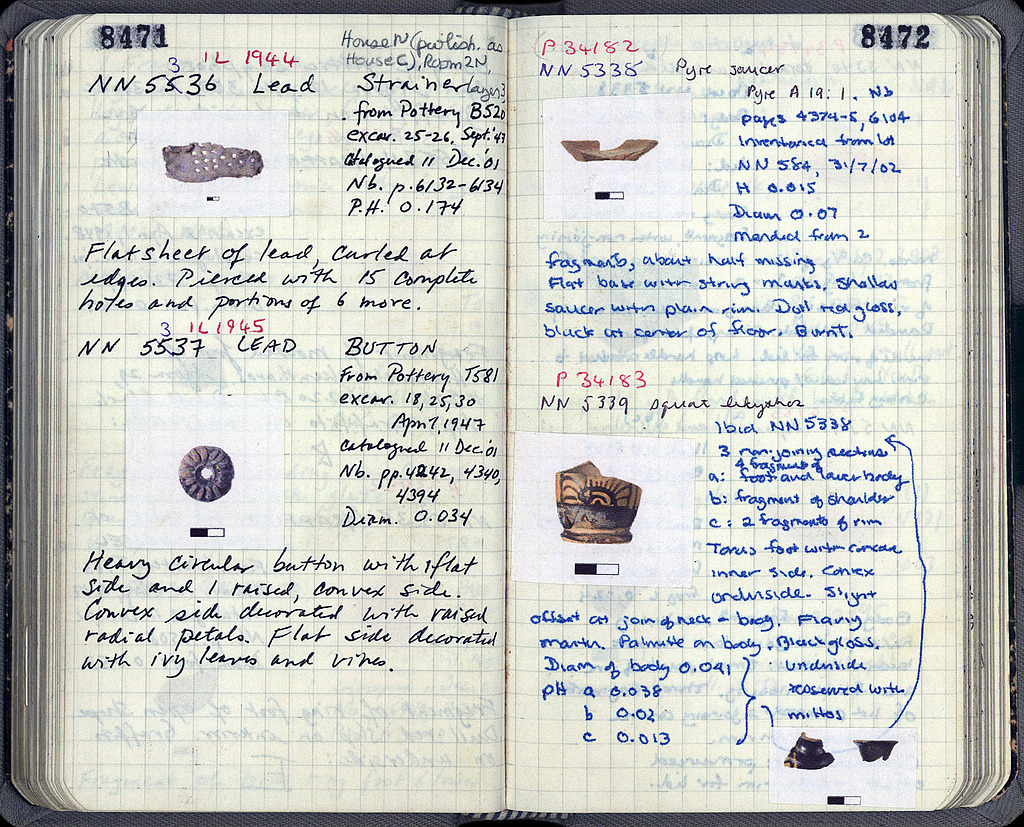 8471
3 IL 1944
NN 5536 Lead Strainer
House N (publish. as
House C), Room 2N,
layer 3
from Pottery B520
excav. 25-26, Sept.'47
Catalogued 11 Dec.'01
Nb. p.6132-6134
P.H. 0.174
Flat sheet of lead, curled at
edges. Pierced with 15 complete
holes and portions of 6 more.
3 IL 1945
NN 5537 LEAD BUTTON
From Pottery T581
excav. 18, 25, 30
April, 1947
Catalogued 11 Dec '01
Nb. pp. 4242, 4340,
4394
Diam. 0.034
Heavy circular button with 1 flat
side and 1 raised, convex side.
Convex side decorated with raised
radial petals. Flat side decorated
with ivy leaves and vines.
8472
P 34182
NN 5338 Pyre saucer
Pyre A 19:1. Nb
pages 4374-5, 6104
Inventoried from lot
NN 584, 31/7/02
H 0.015
Diam 0.07
Mended from 2
fragments, about half missing
Flat base with string marks. Shallow
saucer with plain rim. Dull red gloss,
black at center of floor. Burnt.
P 34183
NN 5339 squat lekythos
Ibid NN 5338
3 non-joining sections
4 fragments of
a: foot and lower body
b: fragment of shoulder
c: 2 fragments of rim
Torus foot with concave
inner side. Convex
underside. Slight
offset at join of neck - body. Flaring
mouth. Palmette on body. Black gloss.
Diam of body 0.041 underside
pH a 0.038 reserved with
b 0.02 miltos
c 0.013